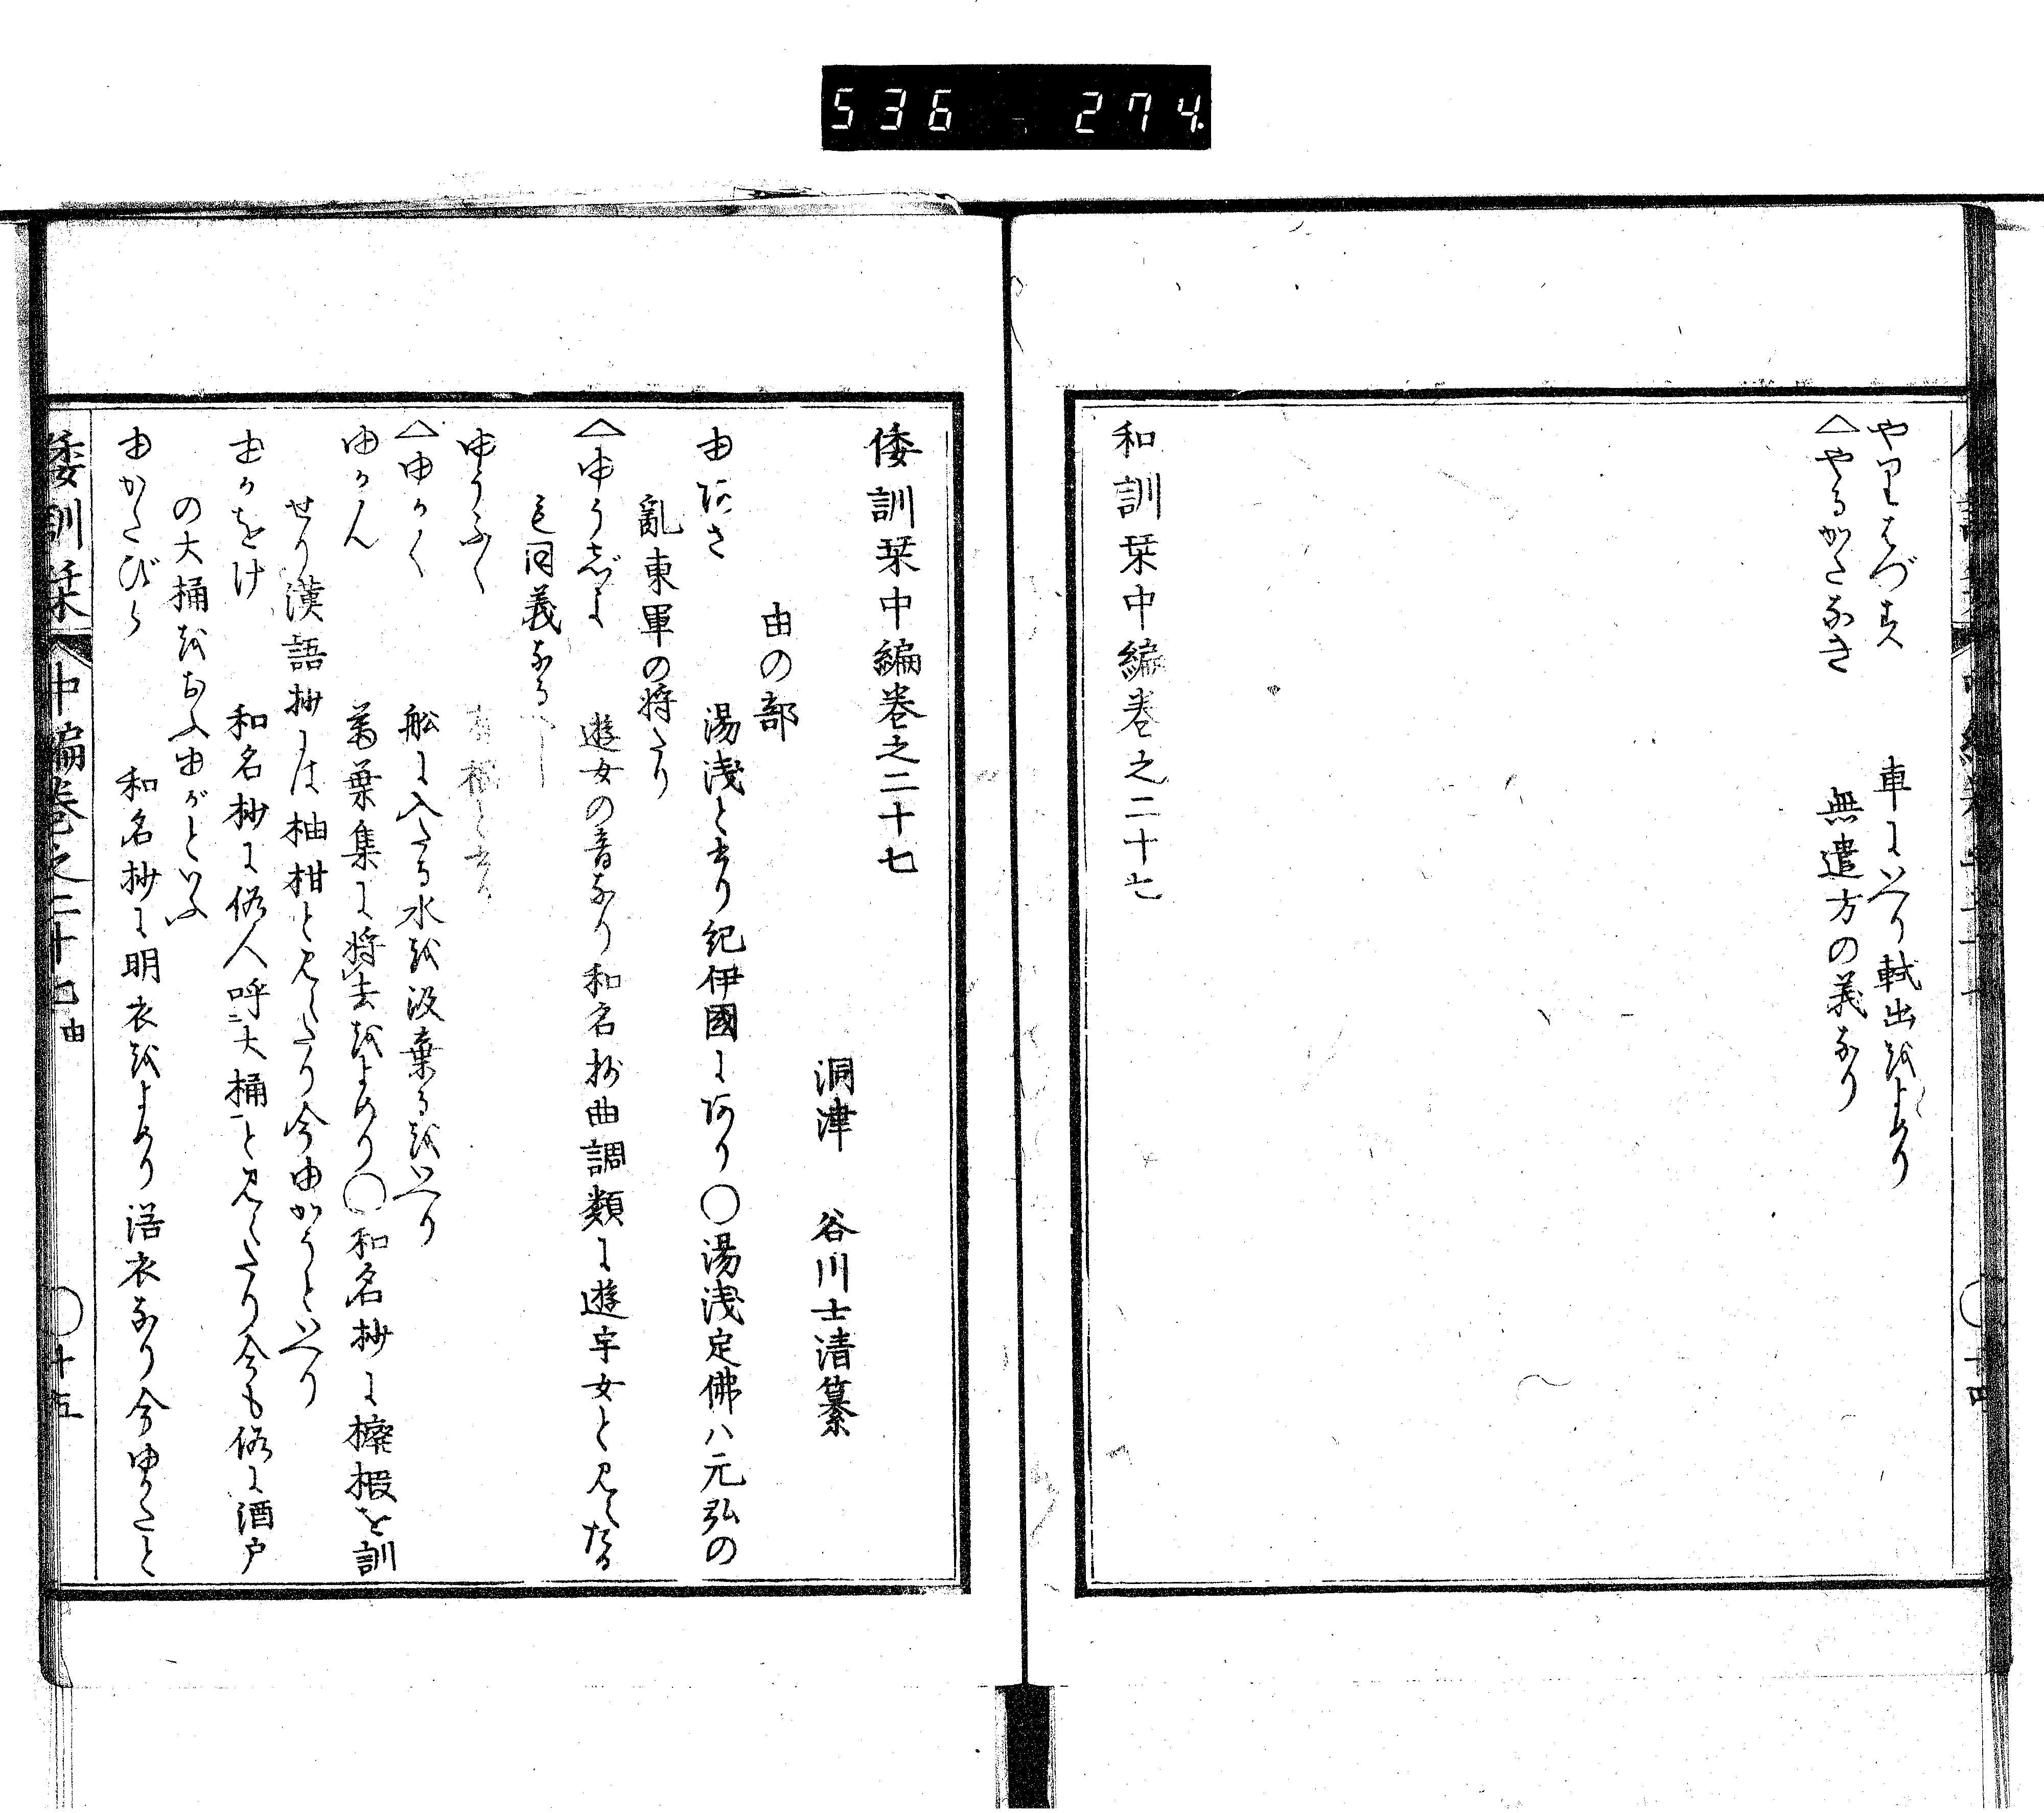 536 274
やりはづす 車にいへり軼出をよめり
△やるかたなき 無遣方の義なり
和訓栞中編巻之二十七
倭訓栞中編巻之二十七
洞津 谷川士清纂
由の部
ゆあさ 湯浅と書り紀伊國にあり〇湯浅定佛ハ元弘の
亂東軍の将たり
△ゆうぢよ 遊女の音なり和名抄曲調類に遊字女と見えたる
も同義なる
ゆうふく
△ゆかく 舩に入たる水を汲棄るをいへり
ゆかん 萬葉集に将去をよめり〇和名抄に櫁椵を訓
せり漢語抄には柚柑と見えたり今ゆかうといへり
ゆかをけ 和名抄に俗人呼二大桶一と見えたり今も俗に酒戸
の大桶をもゆがといふ
ゆかたびら 和名抄に明衣をよめり浴衣なり今ゆかたと
倭訓栞 中編巻之二十七 由 〇十五